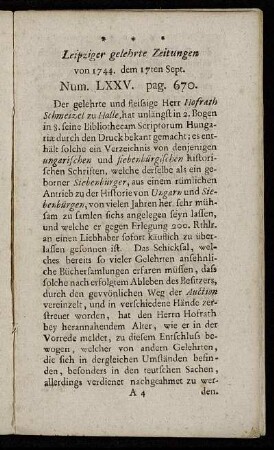 Leipziger gelehrte Zeitungen
von 1744. dem 17ten Sept.
Num. LXXV. pag. 670.
Der gelehrte und fleissige Herr Hofrath
Schmeizel zu Halle, hat unlängst in 2. Bogen
in 8. seine Bibliothecam Scriptorum Hunga-
riæ durch den Druck bekant gemacht: es ent-
hält solche ein Verzeichnis von denjenigen
ungarischen und siebenbürgischen histori-
schen Schriften, welche derselbe als ein ge-
borner Siebenbürger, aus einem rümlichen
Antrieb zu der Historie von Ungarn und Sie-
benbürgen, von vielen Jahren her, sehr müh-
sam zu samlen sichs angelegen seyn lassen,
und welche er gegen Erlegung 200. Rthlr.
an einen Liebhaber sofort käuflich zu über-
lassen gesonnen ist. Das Schicksal, wel-
ches bereits so vieler Gelehrten ansehnli-
che Büchersamlungen erfaren müssen, dass
solche nach erfolgtem Ableben des Besitzers,
durch den gevvönlichen Weg der Auction
vereinzelt, und in verschiedene Hände zer-
streuet worden, hat den Herrn Hofrath
bey herannahendem Alter, wie er in der
Vorrede meldet, zu diesem Entschluss be-
wogen, welcher von andern Gelehrten,
die sich in dergleichen Umständen befin-
den, besonders in den teutschen Sachen,
allerdings verdienet nachgeahmet zu wer-
A 4 den.